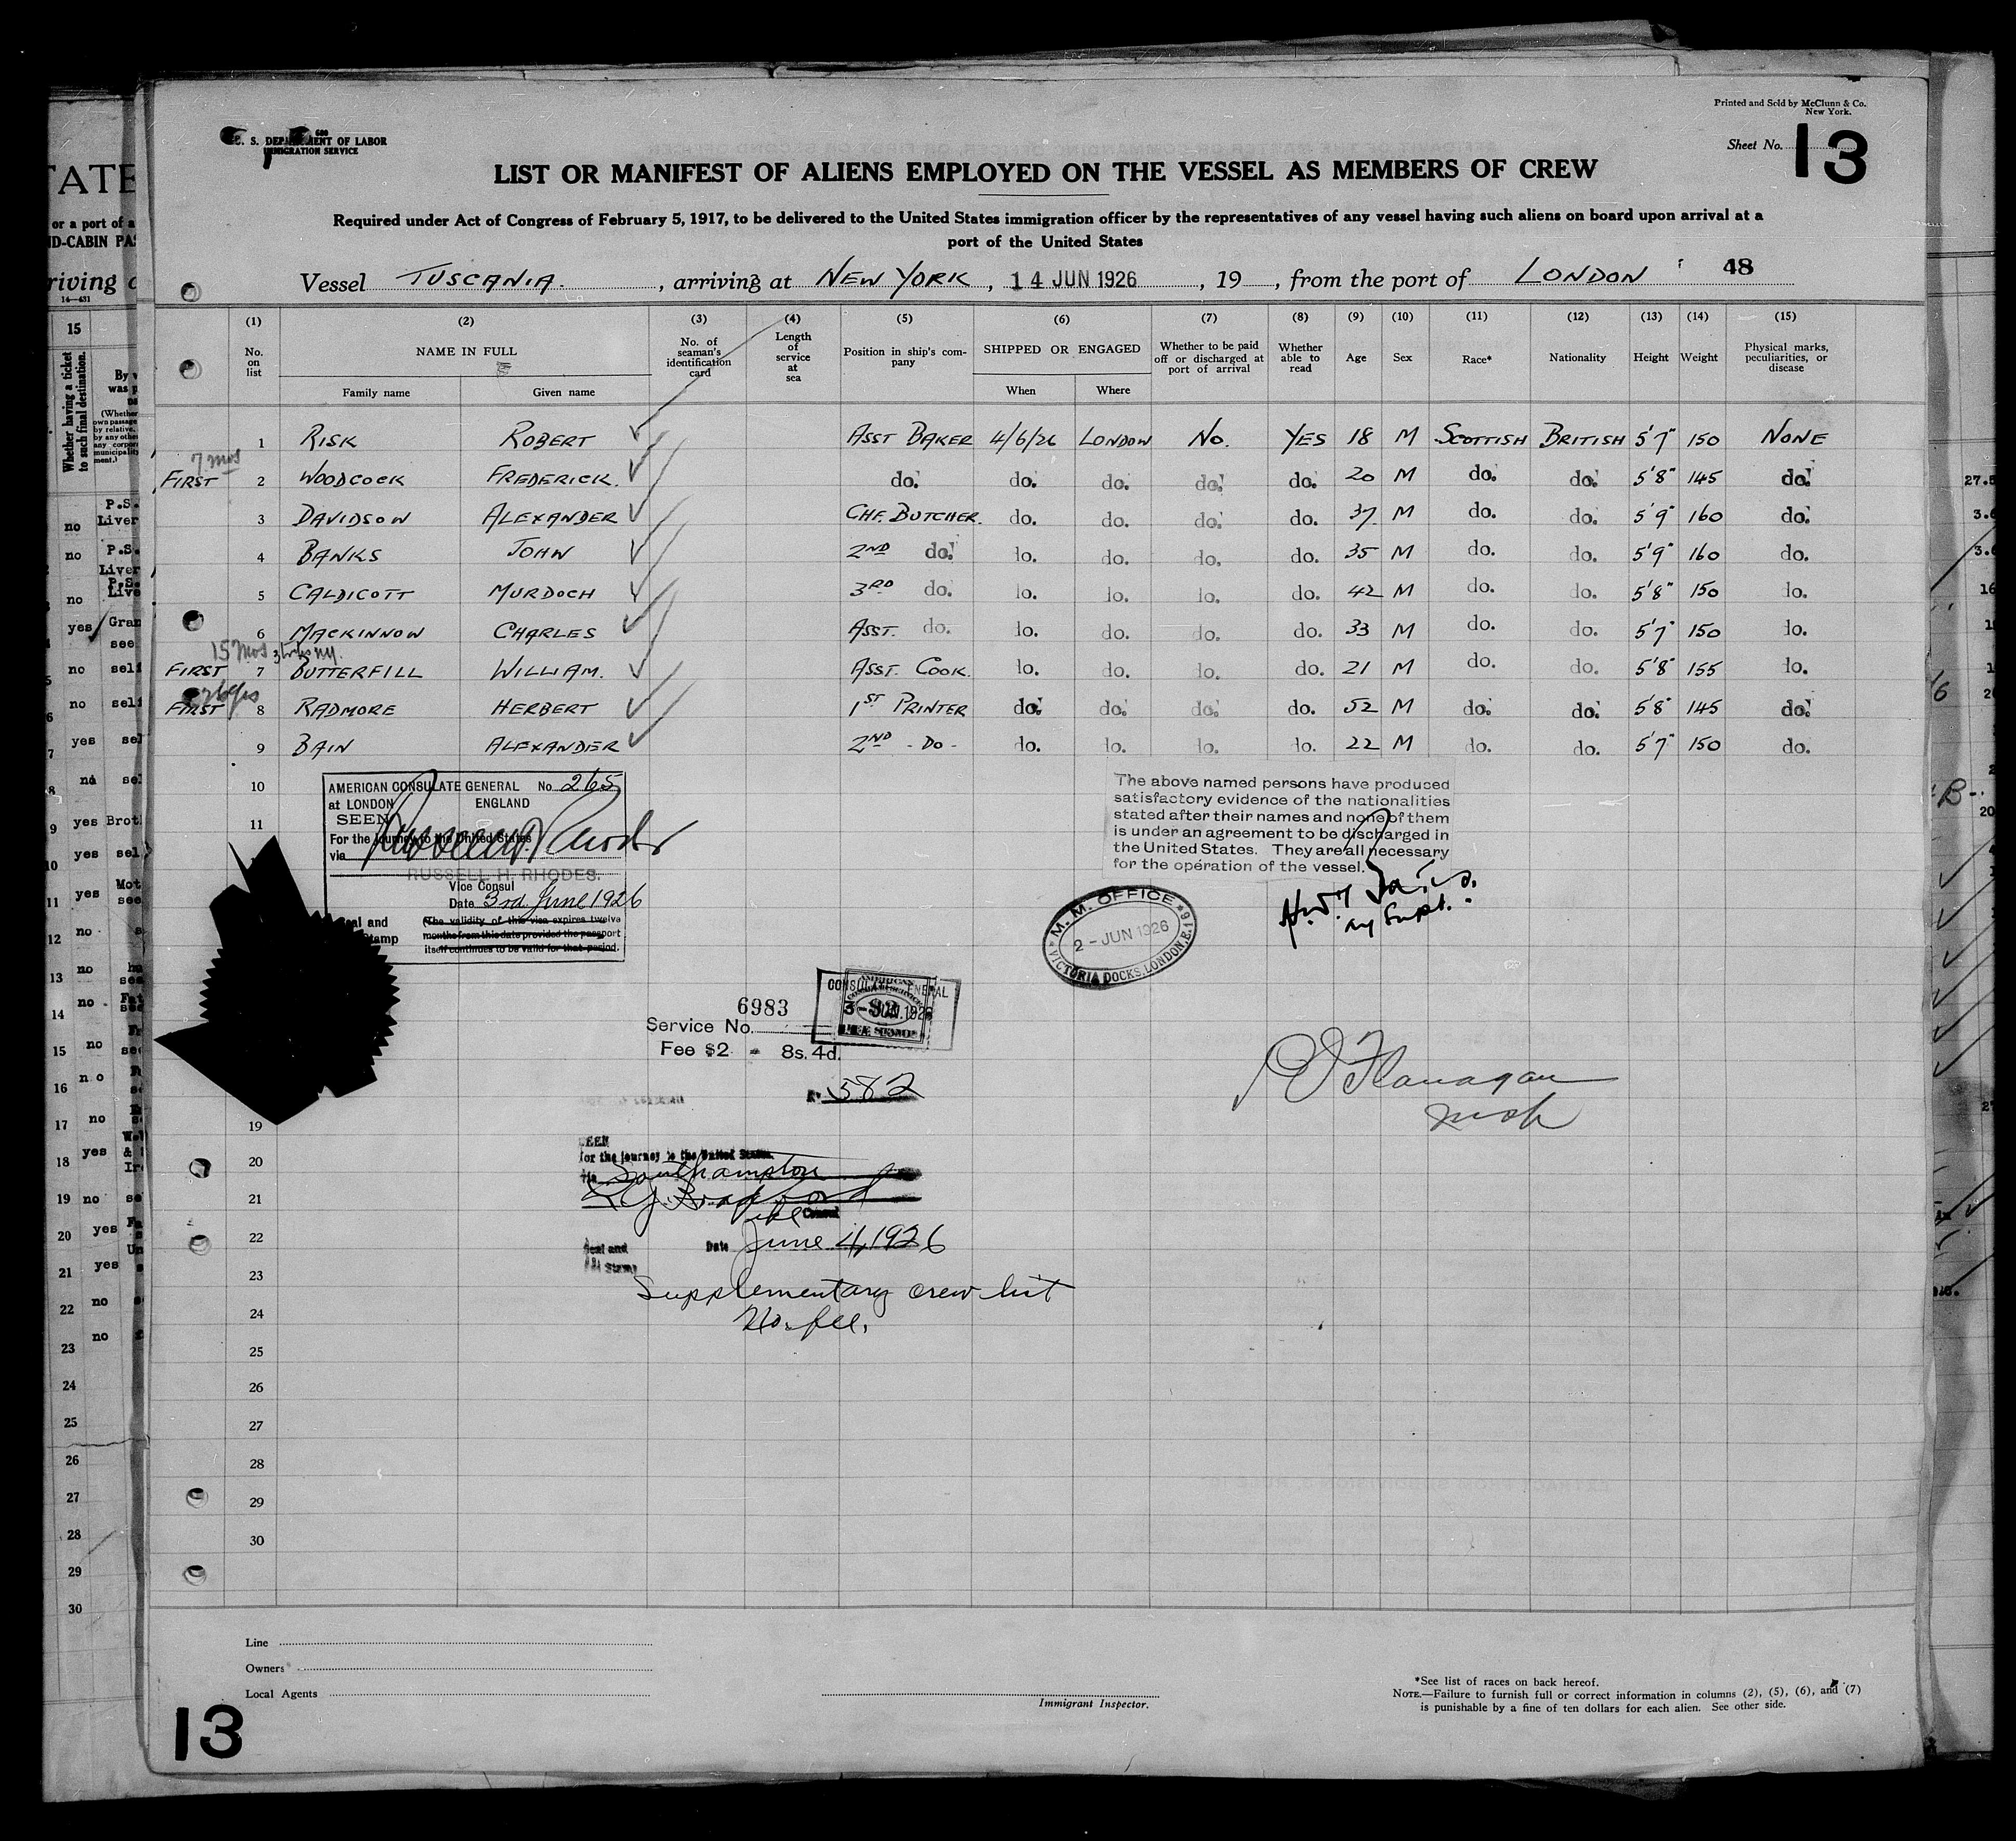 U. S. DEPARTMENT OF LABOR
IMMIGRATION SERVICE
Printed and Sold by McClunn & Co.
New York.
Sheet No. 13
LIST OR MANIFEST OF ALIENS EMPLOYED ON THE VESSEL AS MEMBERS OF CREW
Required under Act of Congress of February 5, 1917, to be delivered to the United States immigration officer by the representatives of any vessel having such aliens on board upon arrival at a
port of the United States
Vessel TUSCANIA. , arriving at NEW YORK , 14 JUN 1926 , 19 , from the port of LONDON 48
(1) (2) (3) (4) (5) (6) (7) (8) (9) (10) (11) (12) (13) (14) (15)
No. on list NAME IN FULL Family name Given name No. of seaman's identification card Length of service at sea Position in ship's company SHIPPED OR ENGAGED When Where Whether to be paid off or discharged at port of arrival Whether able to read Age Sex Race* Nationality Height Weight Physical marks, peculiarities, or disease
1 RISK ROBERT ASST BAKER 4/6/26 LONDON No. YES 18 M SCOTTISH BRITISH 5'7" 150 NONE
7 mos
FIRST 2 WOODCOCK FREDERICK. do. do. do. do. do. 20 M do. do. 5'8" 145 do.
3 DAVIDSON ALEXANDER CHF. BUTCHER. do. do. do. do. 37 M do. do. 5'9" 160 do.
4 BANKS JOHN 2ND do. do. do. do. do. 35 M do. do. 5'9" 160 do.
5 CALDICOTT MURDOCH 3RD do. do. do. do. do. 42 M do. do. 5'8" 150 do.
6 MACKINNON CHARLES ASST. do. do. do. do. do. 33 M do. do. 5'7" 150 do.
15 mos 3 trips NY.
FIRST 7 BUTTERFILL WILLIAM. ASST. COOK. do. do. do. do. 21 M do. do. 5'8" 155 do.
FIRST 8 RADMORE HERBERT 1ST PRINTER do. do. do. do. 52 M do. do. 5'8" 145 do.
9 BAIN ALEXANDER 2ND - DO - do. do. do. do. 22 M do. do. 5'7" 150 do.
10
11
AMERICAN CONSULATE GENERAL No 265
at LONDON ENGLAND
SEEN
For the Journey to the United States
via
RUSSELL H. RHODES.
Vice Consul
Date 3rd June 1926
Seal and (The validity of this visa expires twelve
Stamp months from this date provided the passport
itself continues to be valid for that period.
The above named persons have produced
satisfactory evidence of the nationalities
stated after their names and none of them
is under an agreement to be discharged in
the United States. They are all necessary
for the operation of the vessel.
M. M. OFFICE
2 - JUN 1926
VICTORIA DOCKS, LONDON, E.16
6983
Service No.
Fee $2 - 8s. 4d.
CONSULATE GENERAL
3 - JUN. 1926
FEE STAMP
582
Flanagan
19
20
21
22
23
24
25
26
27
28
29
30
SEEN
for the journey to the United States.
via Southampton
Vice Consul
Date June 4, 1926
Seal and
Stamp
Supplementary crew list
No fee.
Line
Owners
Local Agents
Immigrant Inspector.
*See list of races on back hereof.
NOTE.—Failure to furnish full or correct information in columns (2), (5), (6), and (7)
is punishable by a fine of ten dollars for each alien. See other side.
13